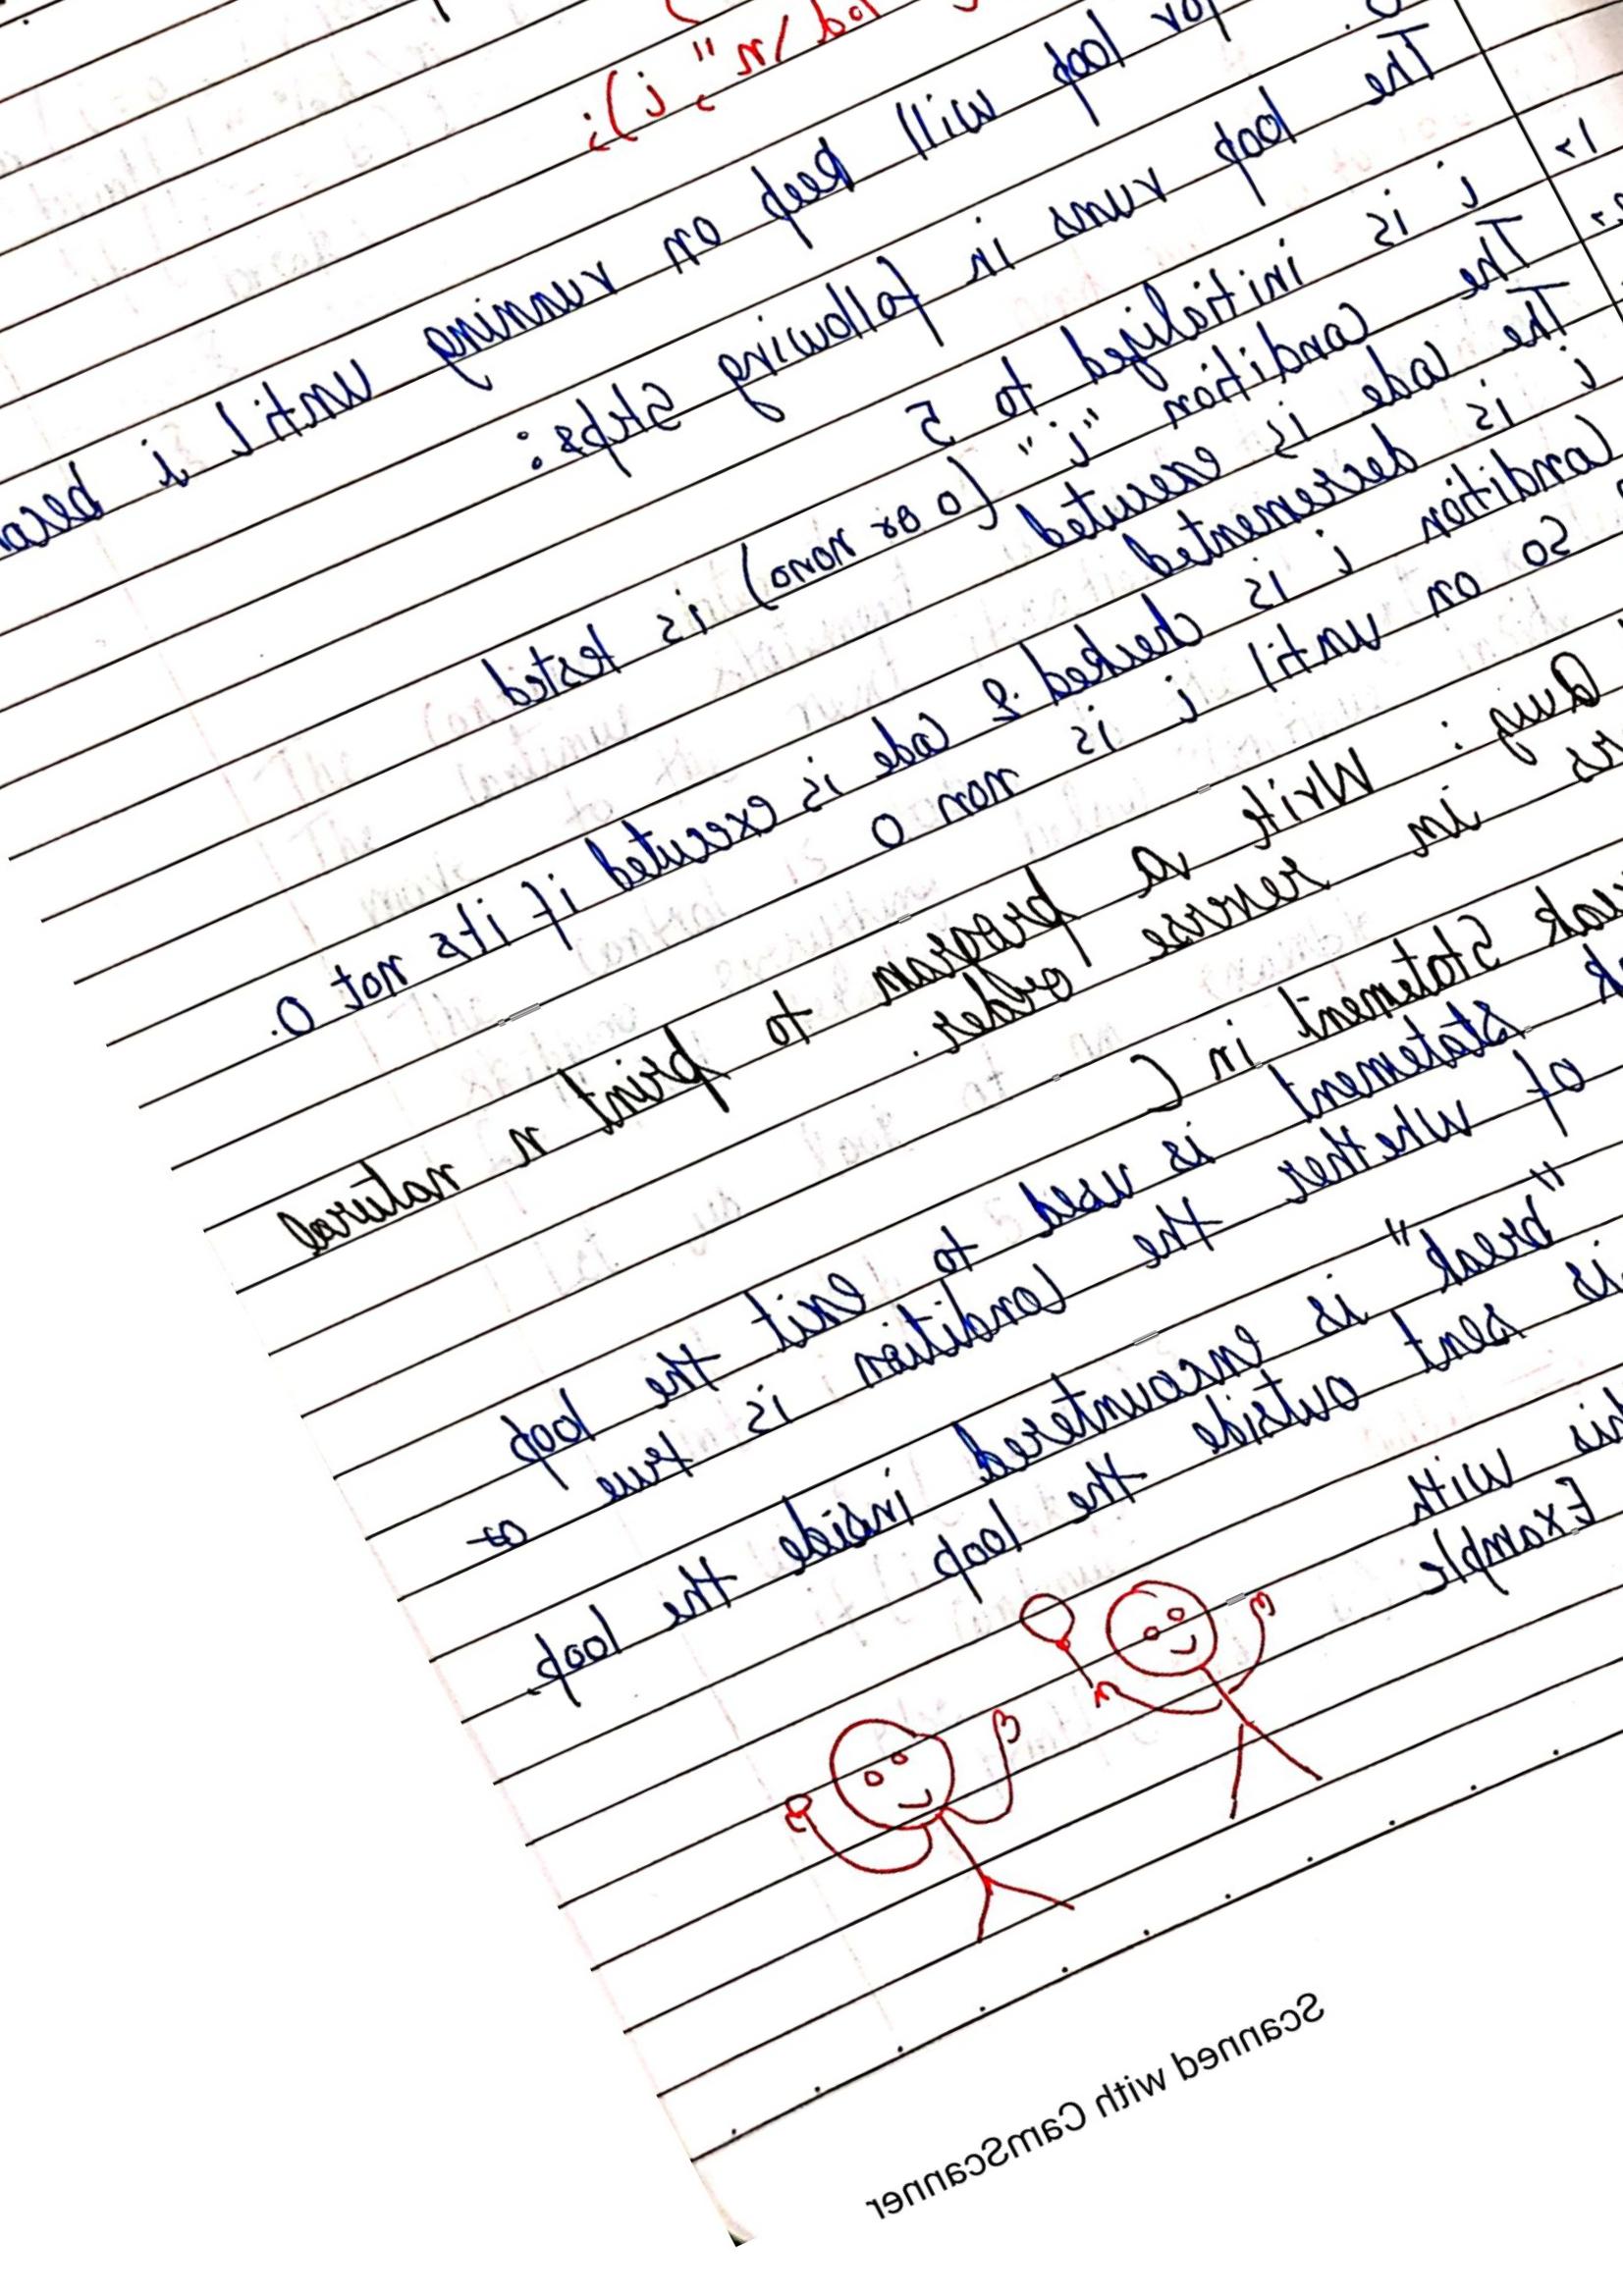 %d \n", i);
for loop will keep on running until i beco
0.
The loop runs in following steps:
1>
i is initialized to 5
2>
The condition "i" (0 or nono) is tested
The code is executed
i is decremented
Condition i is checked & code is executed if its not 0.
So on until i is non 0
Quy: Write a program to print n natural
rs in reverse order.
eak Statement in C
k statement is used to exit the loop
of whether the condition is true or
"break" is encountered inside the loop.
is sent outside the loop
his with
Example
Scanned with CamScanner